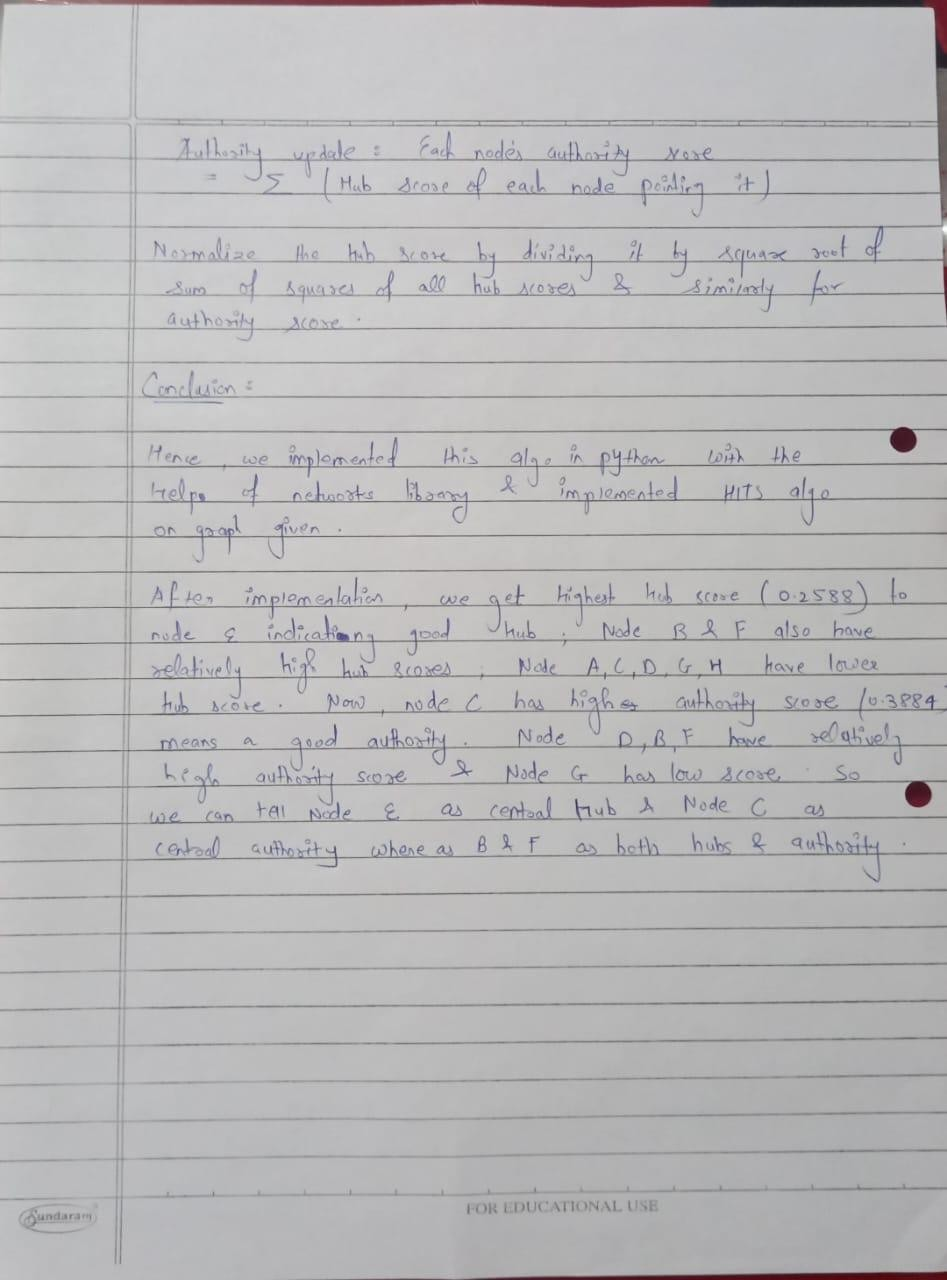 Authority update : Each node's authority score
= Σ (Hub score of each node pointing it)
Normalize the hub score by dividing it by square root of
sum of squares of all hub scores & similarly for
authority score.
Conclusion :
Hence, we implemented this algo in python with the
help of networks library & implemented HITS algo
on graph given.
After implementation, we get highest hub score (0.2588) to
node E indicating good hub; Node B & F also have
relatively high hub scores; Node A, C, D, G, H have lower
hub score. Now, node C has higher authority score (0.3884
means a good authority. Node D, B, F have relatively
high authority score & Node G has low score. So
we can tell Node E as central Hub & Node C as
central authority where as B & F as both hubs & authority.
Sundaram
FOR EDUCATIONAL USE